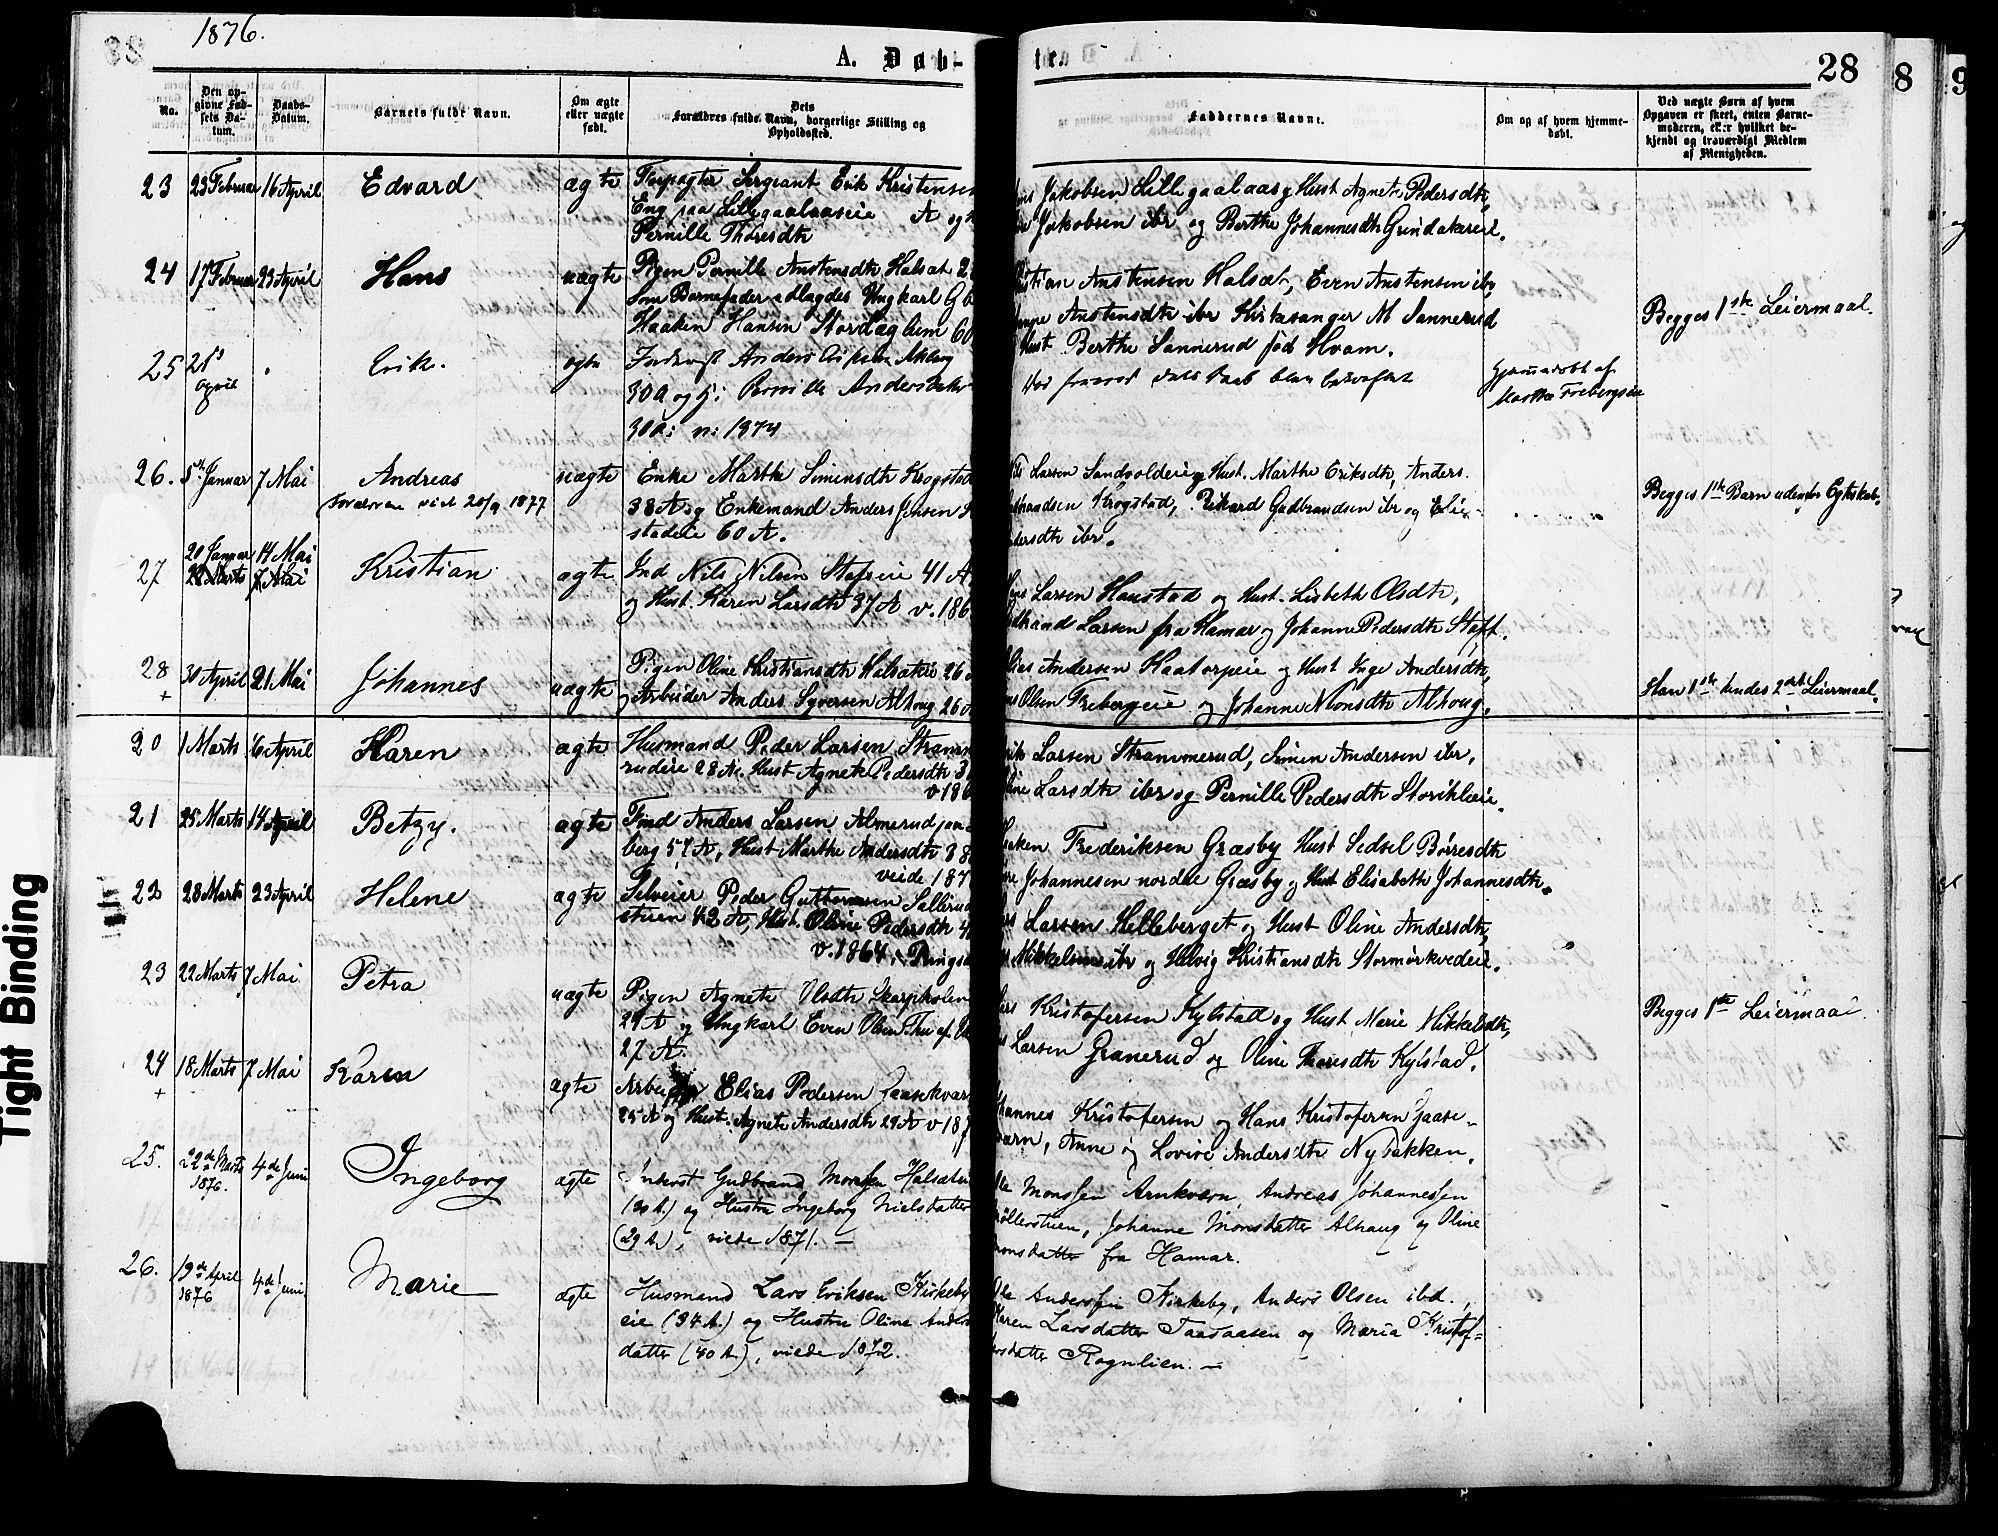 1876.
A. Døb-
te.
28
8
9
No.
Den op-
givne Fød-
sels Da-
tum.
Daabs-
Datum.
Barnets fulde Navn.
Om ægte
eller uægte
født.
Dets
Forældres fulde Navn, borgerlige Stilling og
Opholdssted.
Faddernes Navne.
Om og af hvem hjemme-
døbt.
Ved uægte Børn af hvem
Opgaven er skeet, enten Barne-
moderen, eller hvilket be-
kjendt og troværdigt Medlem
af Menigheden.
23 23 Februar 16 April Edvard ægte Forpagter Sergeant Erik Kristensen
Eng paa Lillegaalaaseie A og
Pernille Thoresdtr
Jakobsen Lillegaalaas og Hust Agnete Pedersdtr,
Jakobsen ibr og Berthe Johannesdtr Grindakereie.
24 17 Februar 23 April Hans uægte Pigen Pernille Anstensdtr Halsæt 2
Som Barnefader udlagdes Ungkarl G
Haaken Hansen Storihaglum 60
stian Anstensen Halsæt, Even Anstensen ibr,
Anstensdtr ibr Kirkesanger M Sannerud
Hust Berthe Sannerud fød Hvam.
Begges 1ste Leiermaal.
25 21s
April
Erik. ægte Anders
30 A og Pernille Andersdatter
30 A. 1874
Daab blev bekræftet
Hjemmedøbt af
Marthe Frebergseie
26. 5te Januar 7 Mai Andreas uægte Enke Marthe Simensdtr Krogstad
20/9 1877
38 A og Enkemand Anders Jensen
stadeie 60 A.
Larsen Sandvoldeie og Hust. Marthe Eriksdtr, Anders
Krogstad, Rikard Gudbrandsen ibr og Elie
dersdtr ibr.
Begges 1ste Barn udenfor Egteskab.
27 20 Januar 14 Mai
28 Marts 7 Mai
Kristian ægte Ind Nils Nilsen Stafseie 41 A
og Hust. Karen Larsdtr 37 A v. 186
Larsen Haustad og Hust. Lisbeth Olsdtr,
Larsen fra Hamar og Johanne Pedersdtr Staff.
28
+
30 April 21 Mai Johannes uægte Pigen Oline Kristiansdtr Halsæteie 26
og Arbeider Anders Syversen Alhoug 26 A
lias Andersen Kaatorpeie og Hust Inge Andersdtr,
Olsen Frebergeie og Johanne Monsdtr Alhoug.
Han 1ste hendes 2det Leiermaal.
20 1 Marts 16 April Karen ægte Husmand Peder Larsen Stramm
rudeie 28 A. Hust Agnete Pedersdtr 3
v 186
Larsen Strammerud, Simen Andersen ibr,
line Larsdtr ibr og Pernille Pedersdtr Storihleie.
21 25 Marts 14 April Betzy. ægte Ind Anders Larsen Almerud paa
berg 51 A, Hust Marthe Andersdtr 38
viede 187
Haaken Frederiksen Græsby Hust Sedsel Børresdtr
Johannesen nordre Græsby og Hust Elisabeth Johannesdtr.
22 28 Marts 23 April Helene ægte Selveier Peder Guttormsen Sallerud
stuen 42 A, Hust. Oline Pedersdtr 4
v. 1864 i Rings
Larsen Helleberget og Hust Oline Andersdtr,
Mikkelsen ibr og Helvig Kristiansdtr Stormørkvedeie.
23 22 Marts 7 Mai Petra uægte Pigen Agnete Olsdtr Skarpholen
29 A og Ungkarl Even Olsen Thu
27 A
Kristofersen Kylstad og Hust Marie Mikkelsdtr,
Larsen Granerud og Oline Thoresdtr Kylstad.
Begges 1ste Leiermaal.
24
+
18 Marts 7 Mai Karen ægte Arbeider Elias Pedersen Gaasekvar
25 A og Hust. Agnete Andersdtr 29 A v 187
hannes Kristofersen og Hans Kristofersen Gaase-
varn, Anne og Lovise Andersdtr Nybakken.
25. 22de Marts
1876.
4de Juni Ingeborg ægte Inderst Gudbrand Monssen Halsætei
(30 A.) og Hustru Ingeborg Nielsdatter
(29 A.), viede 1871. —
Ole Monssen Arnkværn, Andreas Johannessen
Møllerstuen, Johanne Monsdatter Alhaug og Oline
Monsdatter fra Hamar.
26. 19de April
1876
4de Juni Marie ægte Husmand Lars Eriksen Kirkeby
eie (34 A.) og Hustru Oline Anders
datter (40 A.), viede 1872.
Ole Anderssen Kirkeby, Anders Olsen ibd.,
Karen Larsdatter Taasaasen og Maria Kristof-
ersdatter Rognlien. —
Tight Binding